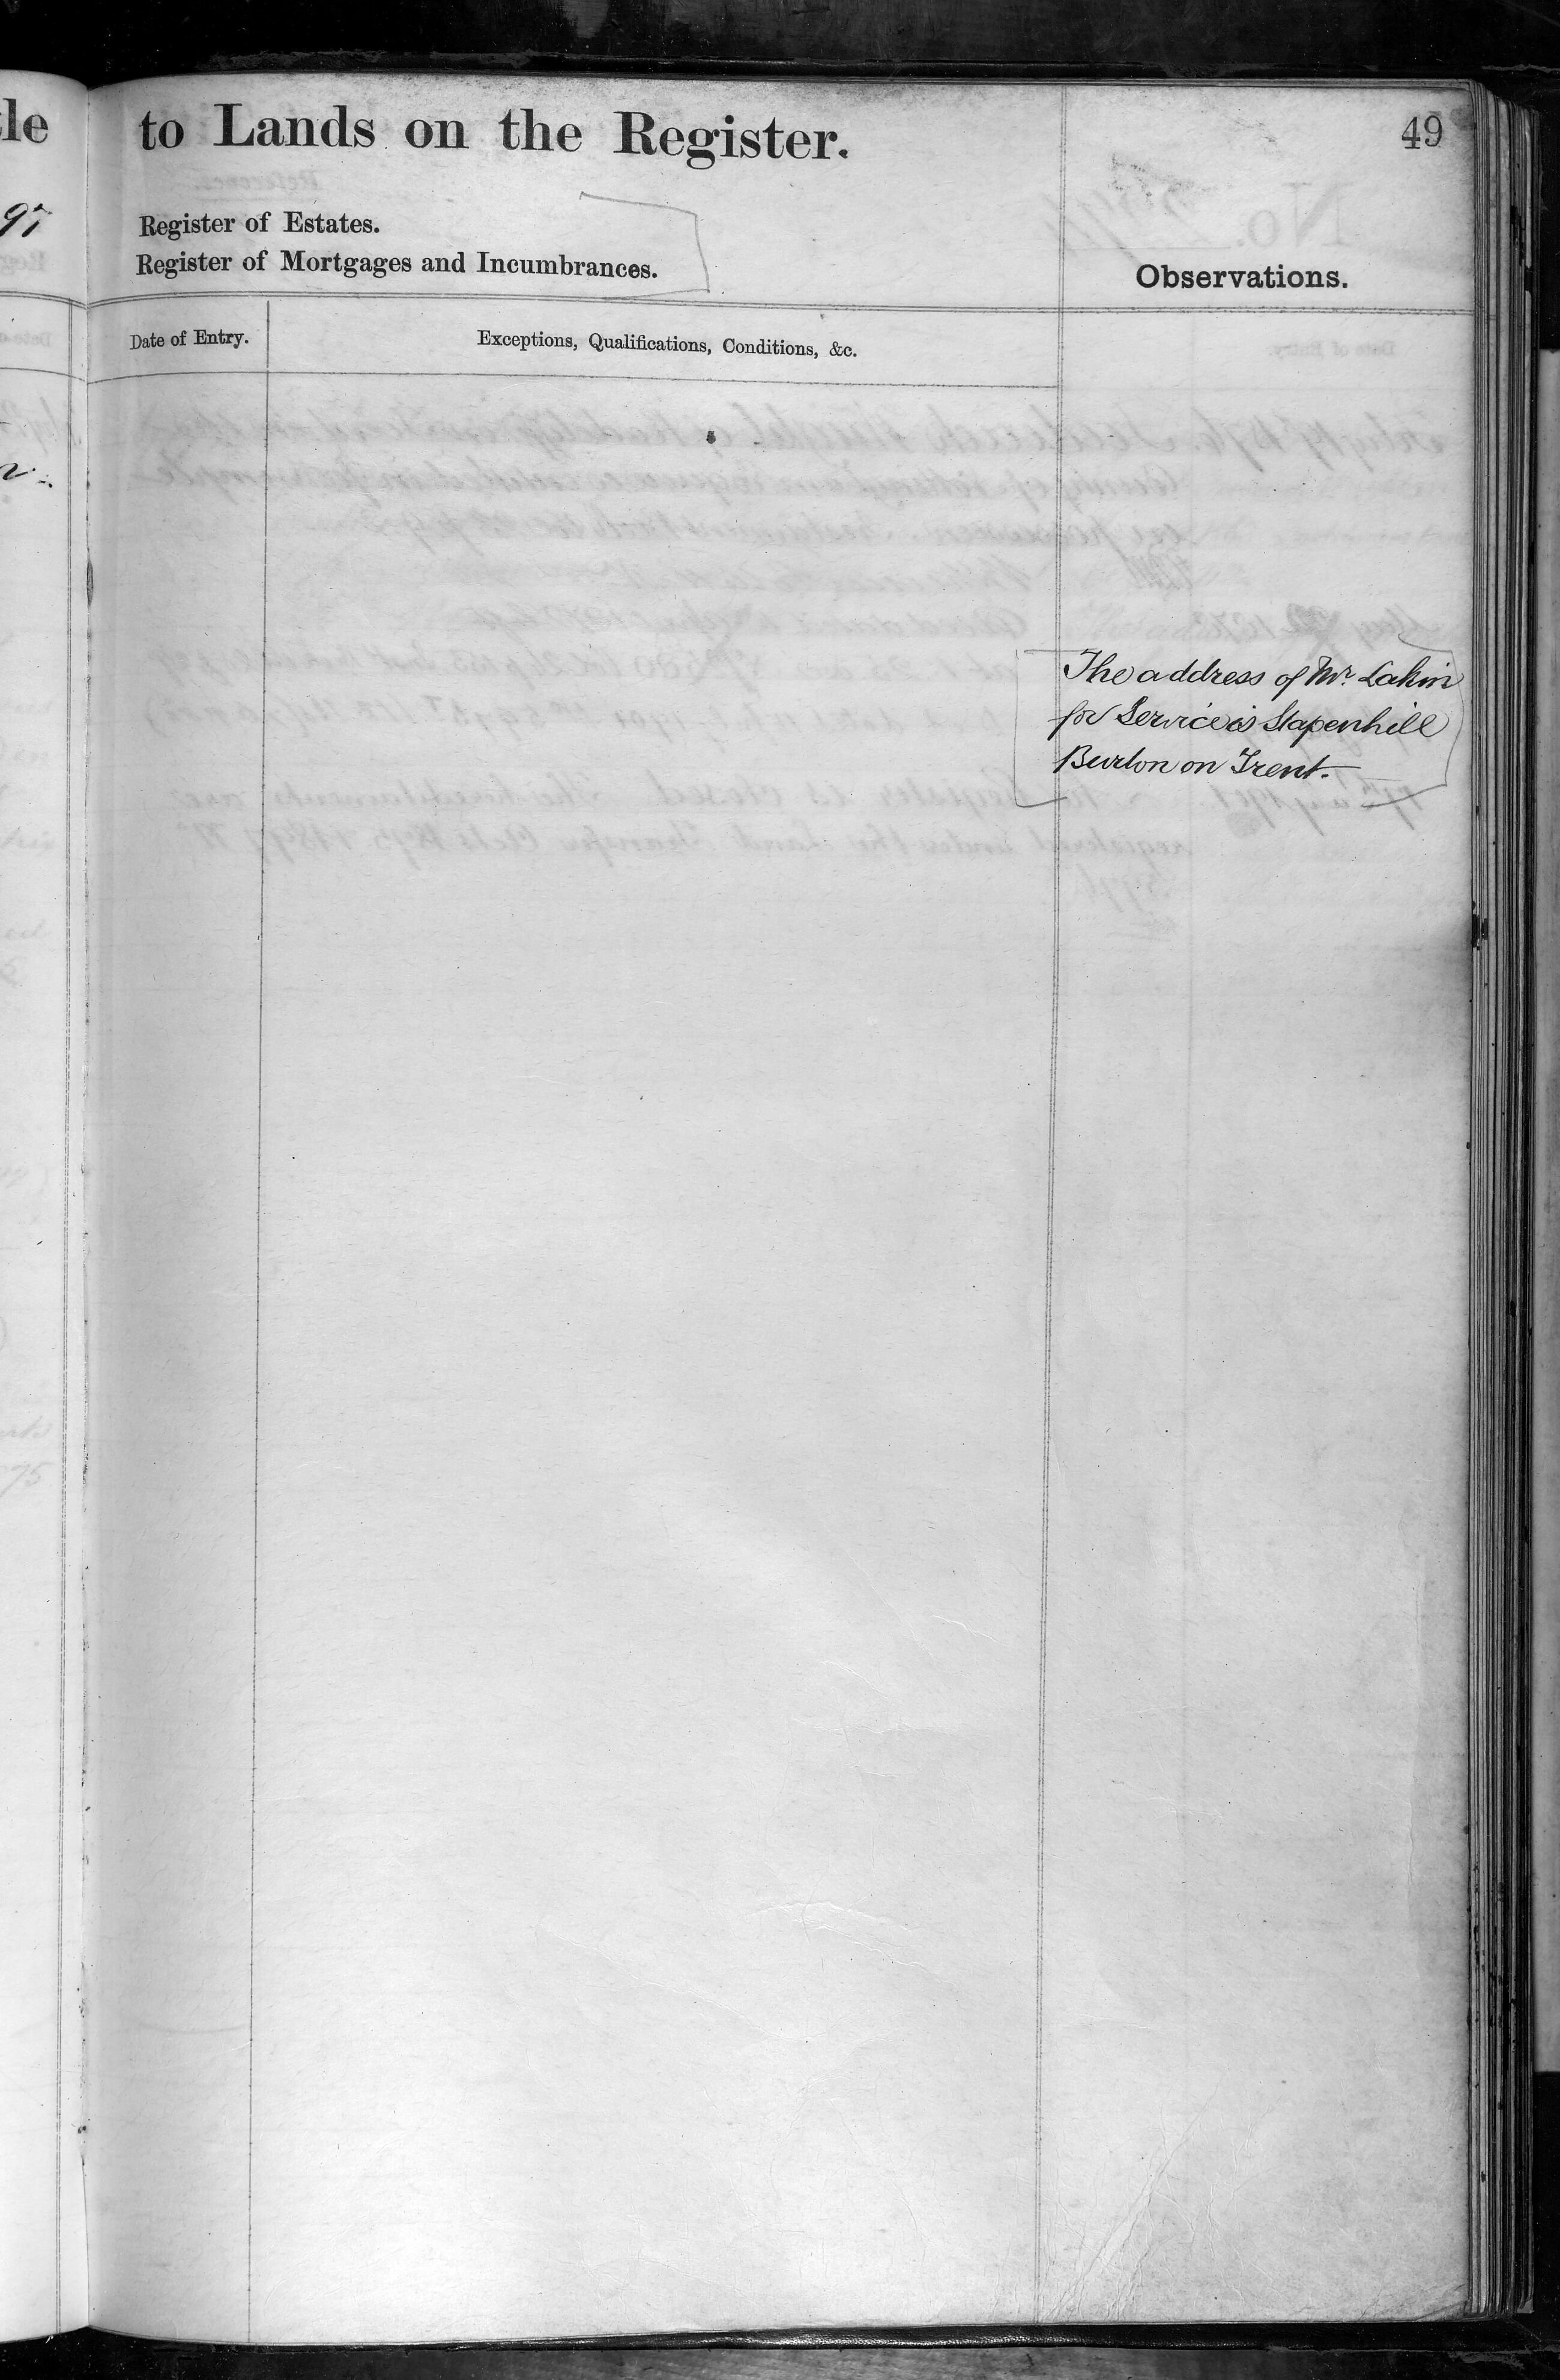 to Lands on the Register.
49
Register of Estates.
Register of Mortgages and Incumbrances.
Observations.
Date of Entry.
Exceptions, Qualifications, Conditions, &c.
The address of Mr. Lakin
for Service is Stapenhill
Burton on Trent.
97